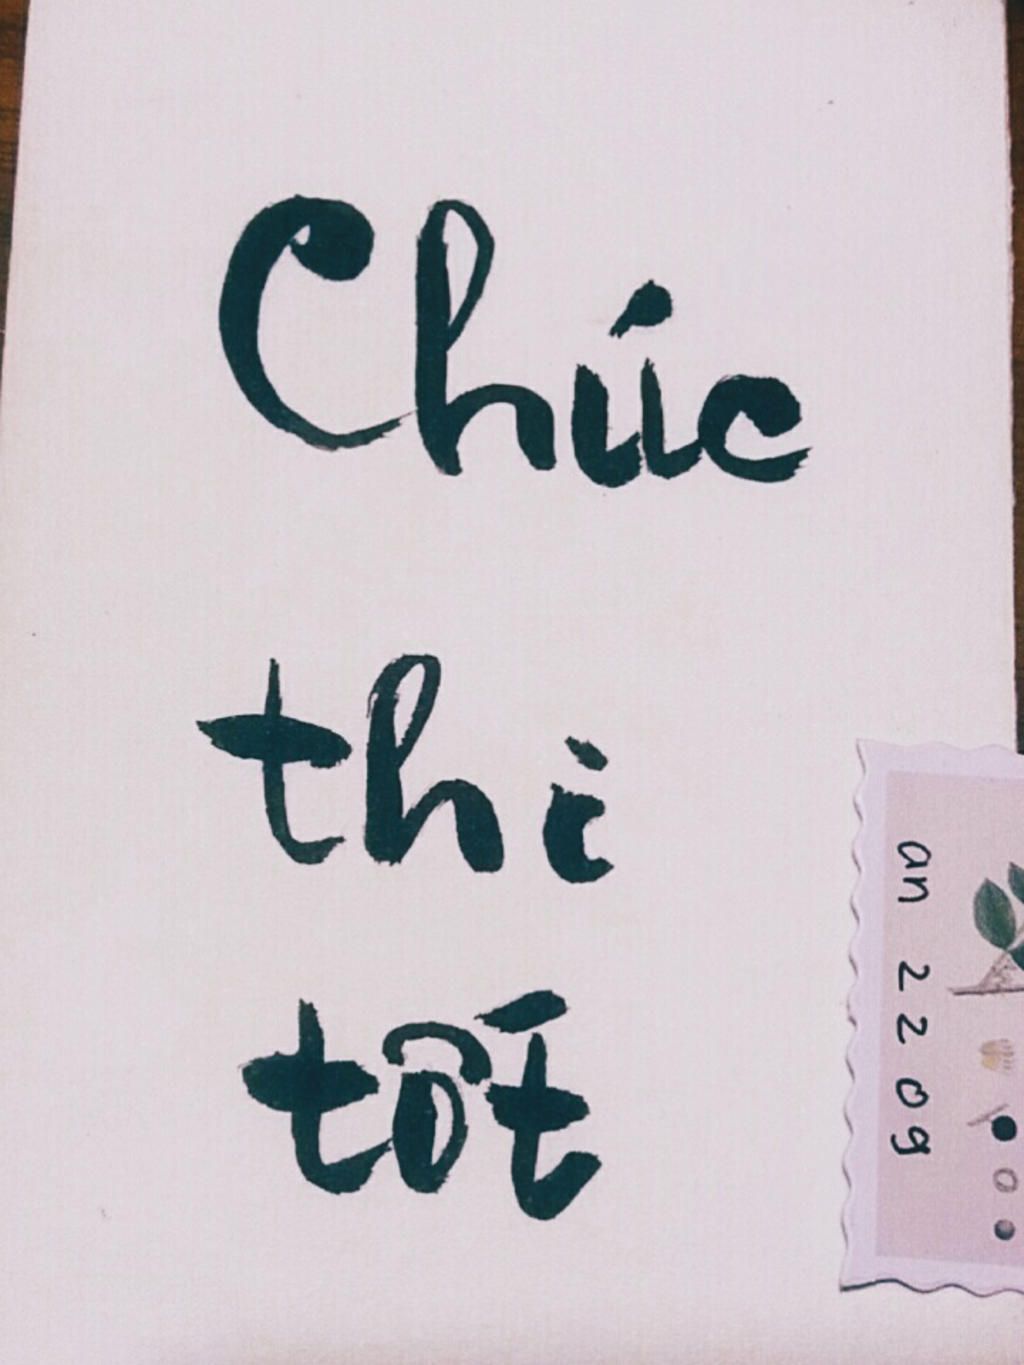 Chúc
thi
tốt
an 2209